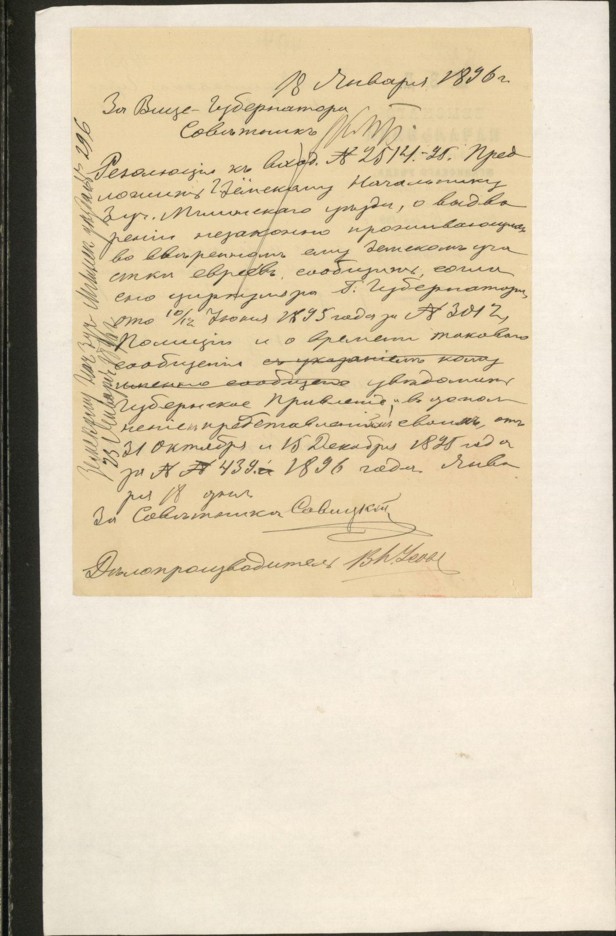 18 Января 1896 г.
За Вице-Губернатора
Совѣтникъ
Резолюція къ вход. № 2514-95. Пред
ложить Земскому Начальнику
3 уч. Мглинскаго уѣзда, о выдво
реніи незаконно проживающихъ
во ввѣренномъ ему Земскомъ уча
сткѣ евреевъ сообщить, согла
сно циркуляра Г. Губернатора
отъ 10/12 Іюня 1895 года за № 3042,
Полиціи и о времени таковаго
сообщенія съ указаніемъ кому
именно сообщено увѣдомить
Губернское Правленіе, въ допол
неніе представленій своихъ, отъ
31 Октября и 15 Декабря 1895 года
за № № 439 1896 года Янва
ря 18 дня
За Совѣтника Савицкій
Дѣлопроизводитель
Земскому Нач. 3 уч. Мглин. уѣзда № 296
23 Января 1896 г.